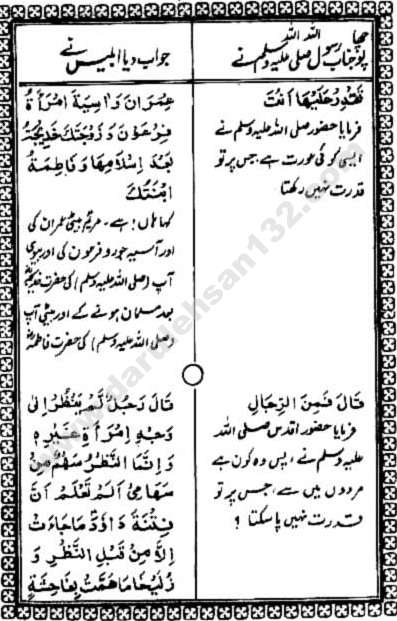 پوچھا جناب رسول اللہ صلی اللہ علیہ وسلم نے
جواب دیا ابلیس نے
تَقْدِرُ عَلَیْهَا اَنْتَ
فرمایا حضور صلی اللہ علیہ وسلم نے
ایسی کوئی عورت ہے، جس پر تو
قدرت نہیں رکھتا
عِمْرَانَ وَاٰسِیَةُ امْرَأَةُ
فِرْعَوْنَ وَزَوْجَتُكَ خَدِیْجَةُ
بَعْدَ اِسْلَامِهَا وَفَاطِمَةُ
ابْنَتُكَ
کہا ہاں! ہے۔ مریم بیٹی عمران کی
اور آسیہ جورو فرعون کی اور بیوی
آپ (صلی اللہ علیہ وسلم) کی حضرت خدیجہؓ
بعد مسلمان ہونے کے اور بیٹی آپ
(صلی اللہ علیہ وسلم) کی حضرت فاطمہؓ
قَالَ فَمِنَ الرِّجَالِ
فرمایا حضور اقدس صلی اللہ
علیہ وسلم نے، پس وہ کون ہے
مردوں میں سے، جس پر تو
قدرت نہیں پا سکتا ؟
قَالَ رَجُلٌ لَمْ یَنْظُرْ اِلٰی
وَجْهِ امْرَأَةٍ غَیْرِهٖ
وَاِنَّمَا النَّظْرُ سَهْمٌ مِنْ
سَهَامِیْ اَلَمْ تَعْلَمْ اَنَّ
فِتْنَةَ دَاوٗدَ مَا جَاءَتْ
اِلَّا مِنْ قَبْلِ النَّظْرِ وَ
زُلَیْخَا مَا هَمَّتْ بِفَاحِشَةٍ
www.darulehsan132.com